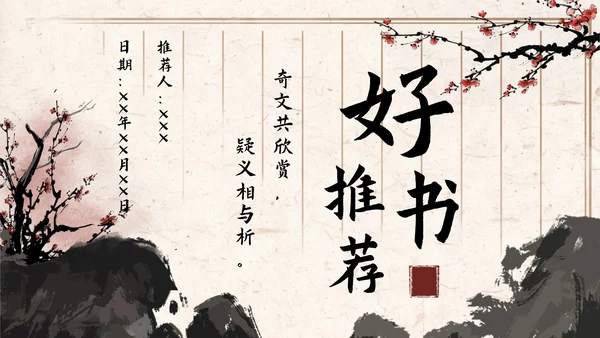 好书
推荐
奇文共欣赏，
疑义相与析。
推荐人：×××
日期：××年××月××日